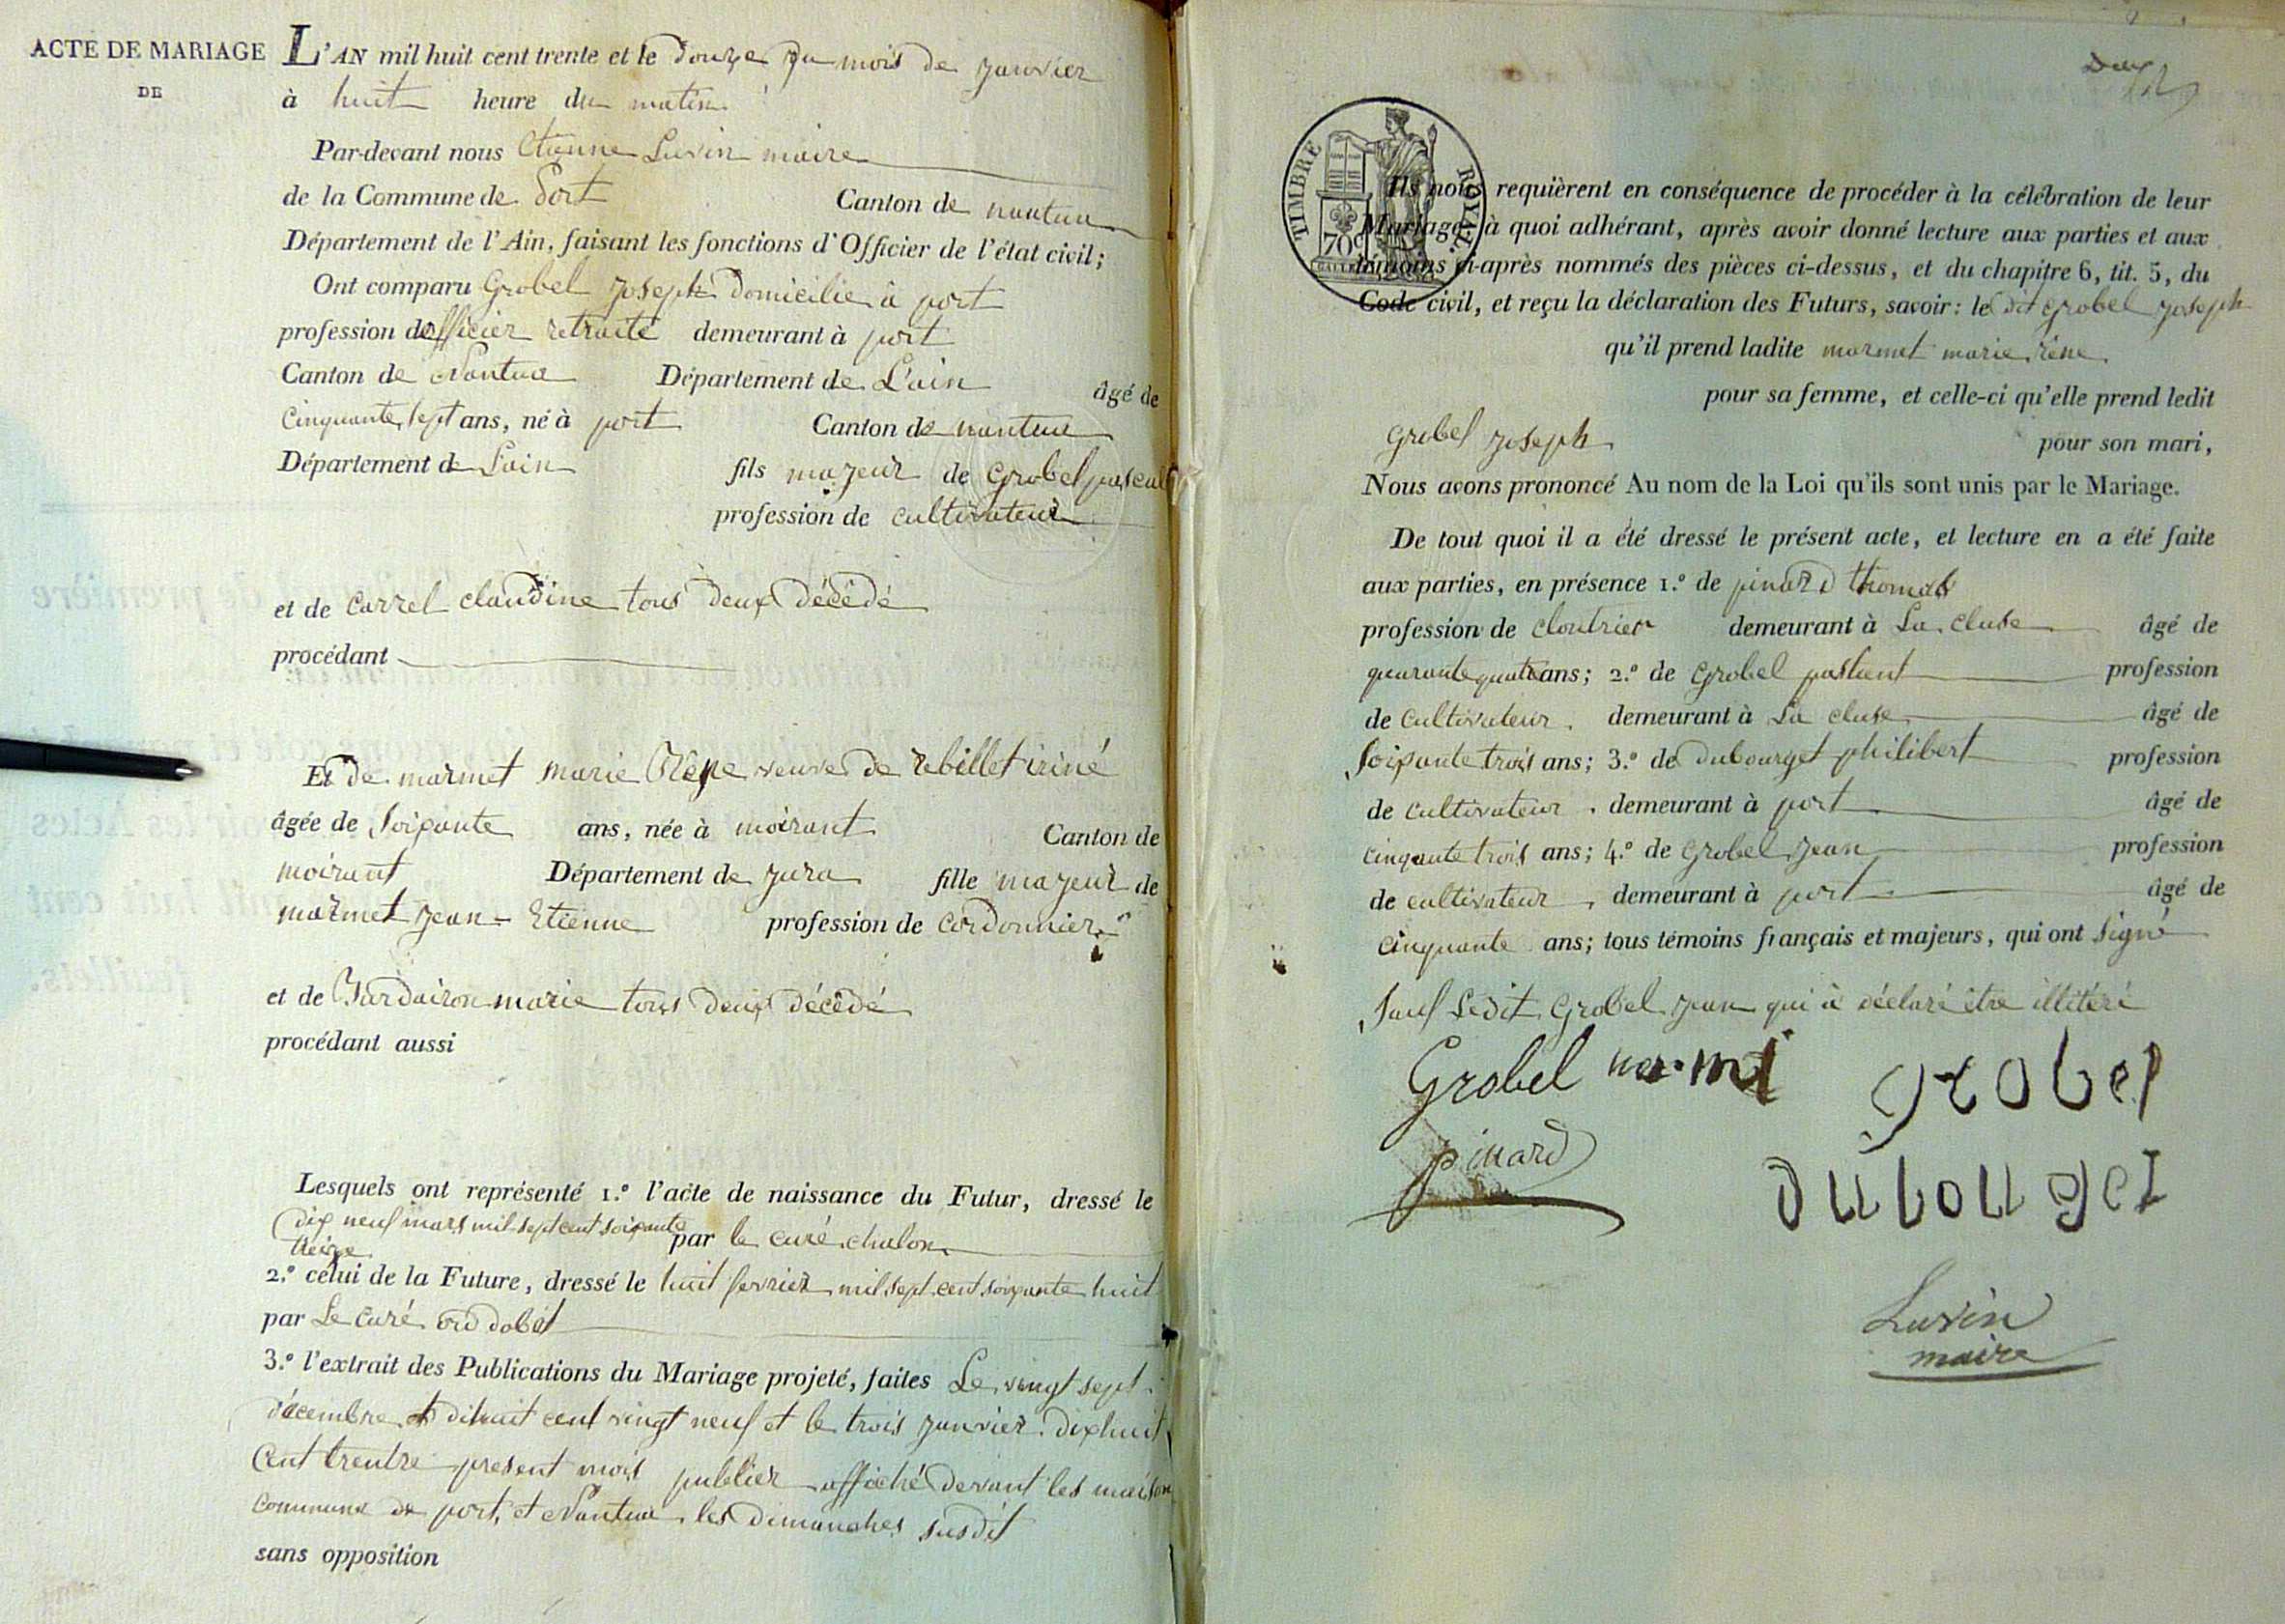 ACTE DE MARIAGE
DE
L'AN mil huit cent trente et le douze du mois de janvier
à huit heure du matin
Par-devant nous Etienne Luvin maire
de la Commune de Port Canton de nantua
Département de l'Ain, faisant les fonctions d'Officier de l'état civil;
Ont comparu Grobel joseph domicilie à port
profession d'officier retraité demeurant à port
Canton de Nantua Département de L'ain âgé de
Cinquante sept ans, né à port Canton de nantua
Département de Lain fils majeur de Grobel pascal
profession de cultivateur
et de Carrel claudine tous deux décédé
procédant
Et de marmet marie Rène veuve de rebillet iriné
âgée de soixante ans, née à moirant Canton de
moirant Département de jura fille majeur de
marmet jean-Etienne profession de cordonnier
et de Bardairon marie tous deux décédé
procédant aussi
Lesquels ont représenté 1.º l'acte de naissance du Futur, dressé le
dix neuf mars mil sept cent soixante
treize par le curé chalon
2.º celui de la Future, dressé le huit fevrier mil sept cent soixante huit
par Le curé
3.º l'extrait des Publications du Mariage projeté, faites Le vingt sept
décembre dihuit cent vingt neuf et le trois janvier dixhuit
Cent trentre present mois publier affiché devant les maison
commune de port, et Nantua les dimanches susdit
sans opposition
TIMBRE ROYAL
70c
Ils nous requièrent en conséquence de procéder à la célébration de leur
Mariage, à quoi adhérant, après avoir donné lecture aux parties et aux
témoins ci-après nommés des pièces ci-dessus, et du chapitre 6, tit. 5, du
Code civil, et reçu la déclaration des Futurs, savoir: le dit grobel joseph
qu'il prend ladite marmet marie rène
pour sa femme, et celle-ci qu'elle prend ledit
Grobel joseph pour son mari,
Nous avons prononcé Au nom de la Loi qu'ils sont unis par le Mariage.
De tout quoi il a été dressé le présent acte, et lecture en a été faite
aux parties, en présence 1.º de pinard thomas
profession de cloutrier demeurant à La cluse âgé de
quarante quatre ans; 2.º de Grobel profession
de cultivateur demeurant à La cluse âgé de
soixante trois ans; 3.º de dubourget philibert profession
de cultivateur demeurant à port âgé de
cinquante trois ans; 4.º de Grobel jean profession
de cultivateur demeurant à port âgé de
cinquante ans; tous témoins français et majeurs, qui ont signé
sauf Ledit Grobel jean qui à déclaré être illitéré
Grobel grobel
pinard
Luvin
maire